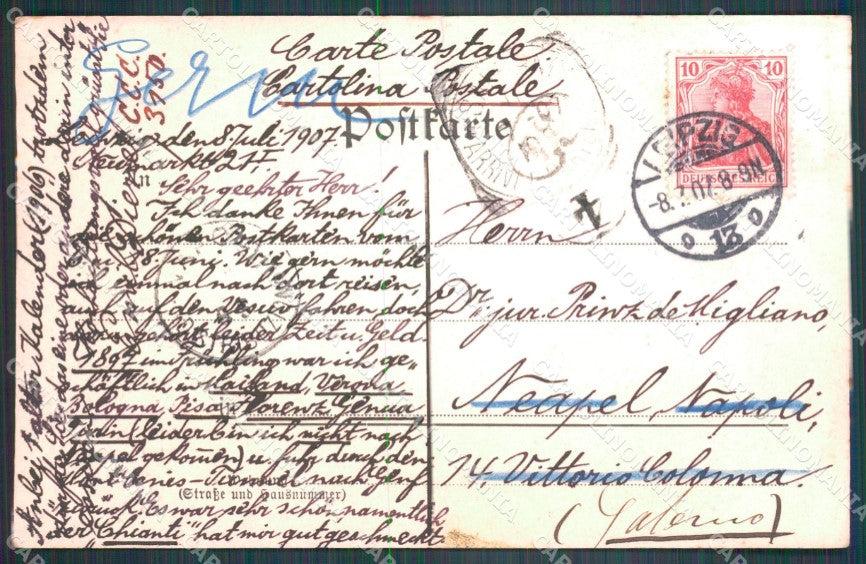 Carte Postale
Cartolina Postale
Postkarte
C.C.C.
3150.
Leipzig den 8 Juli 1907.
Neumarkt 21I
Sehr geehrter Herr!
Ich danke Ihnen für
die schönen Postkarten vom
18 Juni. Wie gern möchte
ich einmal nach dort reisen,
auf den Vesuv fahren, doch
gehört leider Zeit u. Geld.
1897 im Frühling war ich ge-
schäftlich in Mailand, Verona
Bologna, Pisa, Florenz, Genua
Turin (leider bin ich nicht nach
Neapel gekommen) u. fuhr durch den
Mont-Cenis-Tunnel nach Genf
zurück. Es war sehr schön, namentlich
der "Chianti" hat mir gut geschmeckt.
Anbei 1 alten Kalender (1906)
in
(Straße und Hausnummer)
Herrn
Dr. jur. Prinz de Migliano,
Neapel, Napoli,
14, Vittorio Colonna.
(Salerno)
10 10
DEUTSCHES REICH
LEIPZIG
-8.7.07.8-9N.
13
CARTOLINOMANIA